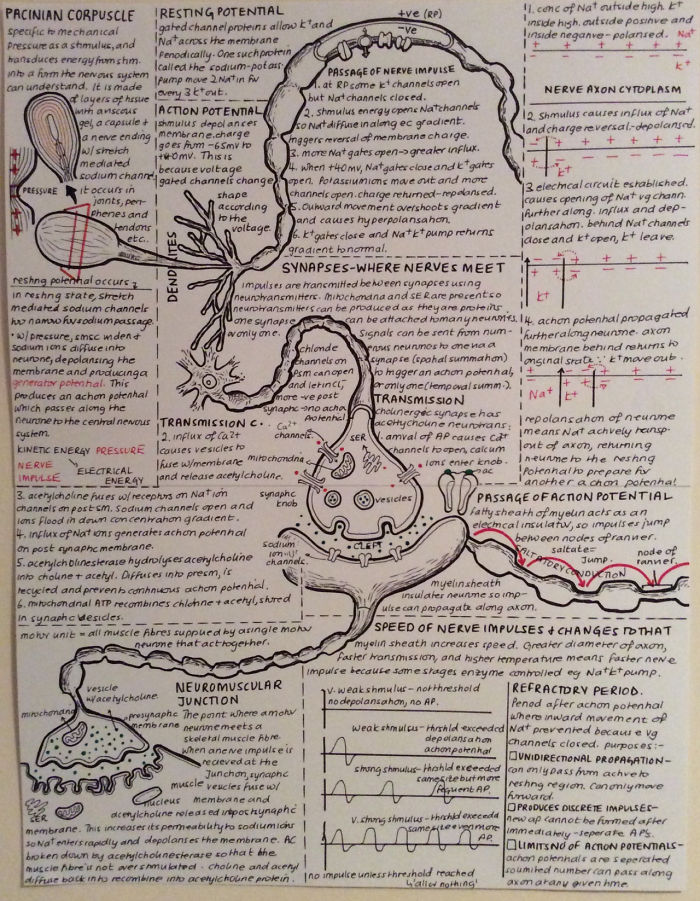 PACINIAN CORPUSCLE
specific to mechanical
pressure as a stimulus, and
transduces energy from stim.
into a form the nervous system
can understand. It is made
of layers of tissue
with a viscous
gel, a capsule &
a nerve ending
w/ stretch
mediated
sodium channel
it occurs in
joints, peri-
phenes and
tendons
etc.
PRESSURE
resting potential occurs
in resting state, stretch
mediated sodium channels
too narrow for sodium passage.
• w/ pressure, smsc widen &
sodium ions diffuse into
neurone, depolarising the
membrane and producing a
generator potential. This
produces an action potential
which passes along the
neurone to the central nervous
system.
KINETIC ENERGY PRESSURE
NERVE
IMPULSE
ELECTRICAL
ENERGY
RESTING POTENTIAL
gated channel proteins allow K+ and
Na+ across the membrane
periodically. One such protein
called the sodium-potass.
pump move 2 Na+ in for
every 3 K+ out.
ACTION POTENTIAL
stimulus depolarises
membrane. charge
goes from -65mv to
+40mv. This is
because voltage
gated channels change
shape
according
to the
voltage.
DENDRITES
+ve (RP)
-ve
PASSAGE OF NERVE IMPULSE
1. at RP some K+ channels open
but Na+ channels closed.
2. stimulus energy opens Na+ channels
so Na+ diffuse in along ec gradient.
triggers reversal of membrane charge.
3. more Na+ gates open → greater influx.
4. when +40mv, Na+ gates close and K+ gates
open. Potassium ions move out and more
channels open. charge returned - repolarised.
5. Outward movement overshoots gradient
and causes hyperpolarisation.
6. K+ gates close and Na+ K+ pump returns
gradient to normal.
1. conc of Na+ outside high. K+
inside high. outside positive and
inside negative - polarised.
Na+
K+
NERVE AXON CYTOPLASM
2. Stimulus causes influx of Na+
and charge reversal - depolarised.
3. electrical circuit established.
causes opening of Na+ vg chann.
further along. influx and dep-
olarisation. behind Na+ channels
close and K+ open, K+ leave.
K+
4. action potential propagated
further along neurone. axon
membrane behind returns to
original state ∵ K+ move out.
Na+
K+
repolarisation of neurone
means Na+ actively transp.
out of axon, returning
neurone to the resting
potential to prepare for
another action potential
SYNAPSES - WHERE NERVES MEET
impulses are transmitted between synapses using
neurotransmitters. Mitochondria and SER are present so
neurotransmitters can be produced as they are proteins.
one synapse can be attached to many neurones,
or only one.
Signals can be sent from num-
erous neurones to one via a
synapse (spatial summation)
to trigger an action potential,
or only one (temporal summ.).
chloride
channels on
psm can open
and let in Cl,
more -ve post
synaptic → no action
potential
TRANSMISSION
cholinergic synapse has
acetylcholine neurotrans.
1. arrival of AP causes Ca2+
channels to open, calcium
ions enter knob.
TRANSMISSION C..
2. influx of Ca2+
causes vesicles to
fuse w/ membrane
and release acetylcholine.
Ca2+
channels
SER
mitochondria
synaptic
knob
vesicles
CLEFT
sodium
ion
channels
3. acetylcholine fuses w/ receptors on Na+ ion
channels on postsm. Sodium channels open and
ions flood in down concentration gradient.
4. influx of Na+ ions generates action potential
on post synaptic membrane.
5. acetylcholinesterase hydrolyses acetylcholine
into choline + acetyl. Diffuses into presm, is
recycled and prevents continuous action potential.
6. mitochondrial ATP recombines choline + acetyl, stored
in synaptic vesicles.
PASSAGE OF ACTION POTENTIAL
fatty sheath of myelin acts as an
electrical insulator, so impulses jump
between nodes of ranvier.
saltate =
jump.
SALTATORY CONDUCTION
node of
ranvier.
myelin sheath
insulates neurone so imp-
ulse can propagate along axon.
motor unit = all muscle fibres supplied by a single motor
neurone that act together.
SPEED OF NERVE IMPULSES & CHANGES TO THAT
myelin sheath increases speed. Greater diameter of axon,
faster transmission, and higher temperature means faster nerve
impulse because some stages enzyme controlled eg Na+K+ pump.
NEUROMUSCULAR
JUNCTION
The point where a motor
neurone meets a
skeletal muscle fibre.
When a nerve impulse is
recieved at the
junction, synaptic
vesicles fuse w/
membrane and
acetylcholine released into postsynaptic
membrane. This increases its permeability to sodium ions
so Na+ enters rapidly and depolarises the membrane. AC
broken down by acetylcholinesterase so that the
muscle fibre is not over stimulated - choline and acetyl
diffuse back into recombine into acetylcholine protein.
vesicle
w/ acetylcholine.
mitochondria
presynaptic
membrane
muscle
nucleus
SER
v. weak stimulus - no threshold
no depolarisation, no AP.
weak stimulus - thrshld exceeded
depolarisation
action potential
strong stimulus - thrshld exceeded
same size but more
frequent AP.
v. strong stimulus - thrshld exceeded
same size even more
AP.
no impulse unless threshold reached
↳ 'all or nothing'
REFRACTORY PERIOD.
Period after action potential
where inward movement of
Na+ prevented because vg
channels closed. purposes:-
UNIDIRECTIONAL PROPAGATION-
can only pass from active to
resting region. Can only move
forward.
PRODUCES DISCRETE IMPULSES-
new ap cannot be formed after
immediately - seperate AP's.
LIMITS NO OF ACTION POTENTIALS-
action potentials are seperated
so limited number can pass along
axon at any given time.